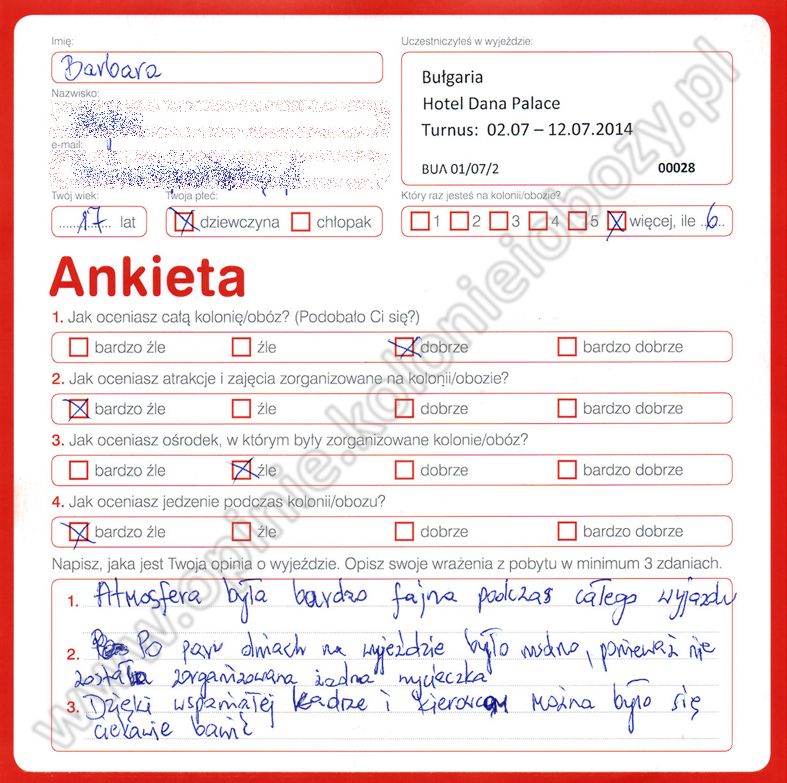 Imię:
Barbara
Uczestniczyłeś w wyjeździe:
Bułgaria
Hotel Dana Palace
Turnus: 02.07 – 12.07.2014
BUA 01/07/2 00028
Nazwisko:
e-mail:
Twój wiek:
17 lat
Twoja płeć:
dziewczyna chłopak
Który raz jesteś na kolonii/obozie?
1 2 3 4 5 więcej, ile 6
Ankieta
1. Jak oceniasz całą kolonię/obóz? (Podobało Ci się?)
bardzo źle źle dobrze bardzo dobrze
2. Jak oceniasz atrakcje i zajęcia zorganizowane na kolonii/obozie?
bardzo źle źle dobrze bardzo dobrze
3. Jak oceniasz ośrodek, w którym były zorganizowane kolonie/obóz?
bardzo źle źle dobrze bardzo dobrze
4. Jak oceniasz jedzenie podczas kolonii/obozu?
bardzo źle źle dobrze bardzo dobrze
Napisz, jaka jest Twoja opinia o wyjeździe. Opisz swoje wrażenia z pobytu w minimum 3 zdaniach.
1. Atmosfera była bardzo fajna podczas całego wyjazdu
2. Po paru dniach na wyjeździe było nudno, ponieważ nie
została zorganizowana żadna wycieczka
3. Dzięki wspaniałej kadrze i kierowcom można było się
ciekawie bawić
www.opinie.kolonieiobozy.pl